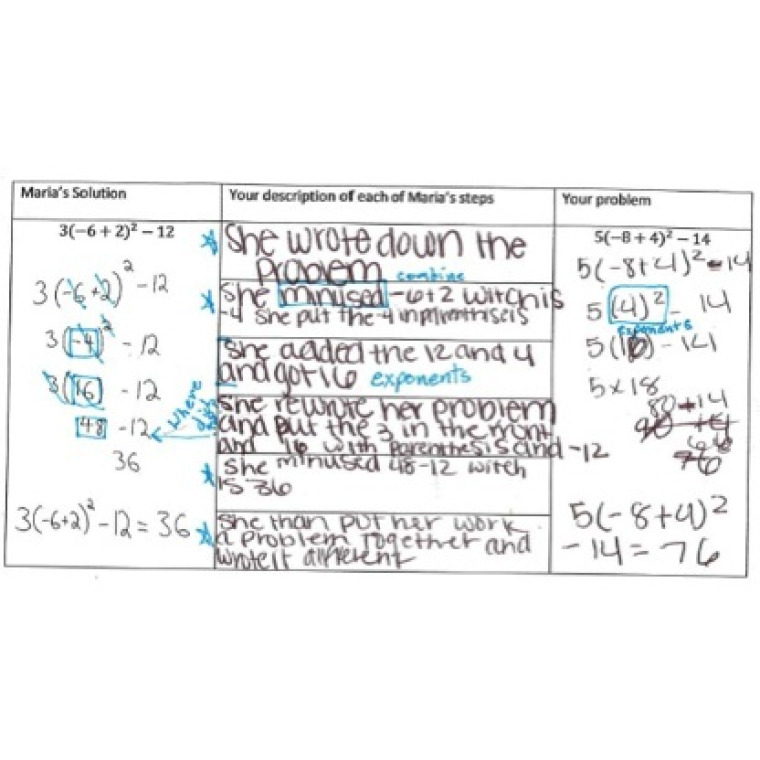 Maria's Solution
3(−6 + 2)² − 12
3(-6+2)² -12
3(-4)² - 12
3(16) - 12
48 -12
36
3(-6+2)² -12 = 36
Your description of each of Maria's steps
She wrote down the
problem combine
She minused -6+2 witch is
-4 she put the -4 in
she added the 12 and 4
and got 16 exponents
where
she rewrote her problem
and put the 3 in the front
and 16 with parenthesis and -12
she minused 48-12 witch
is 36
she than put her work
n problem together and
wrote it different
Your problem
5(−8 + 4)² − 14
5(-8+4)² - 14
5(4)² - 14
exponents
5(16) - 14
5x18
80 +14
76
5(-8+4)²
-14 = 76